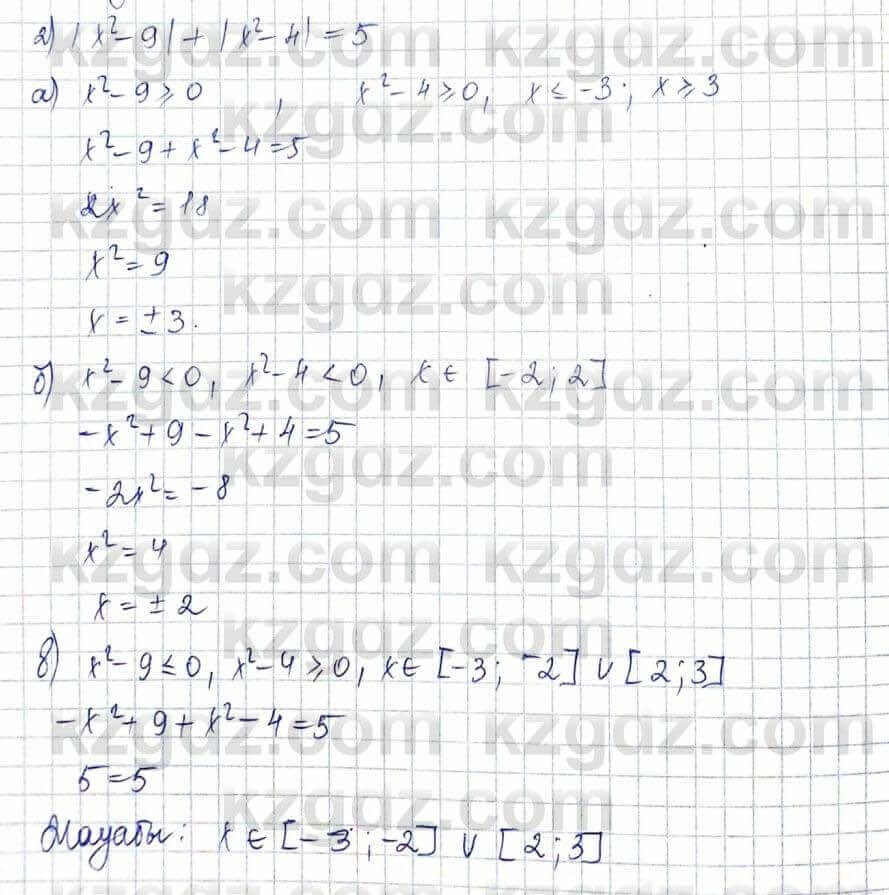 2) |x²-9|+|x²-4|=5
а) x²-9≥0, x²-4≥0, x≤-3; x≥3
x²-9+x²-4=5
2x²=18
x²=9
x=±3.
б) x²-9<0, x²-4<0, x∈ [-2;2]
-x²+9-x²+4=5
-2x²=-8
x²=4
x=±2
в) x²-9≤0, x²-4≥0, x∈[-3;-2]∪[2;3]
-x²+9+x²-4=5
5=5
Жауабы: x∈[-3;-2]∪[2;3]
kzgdz.com